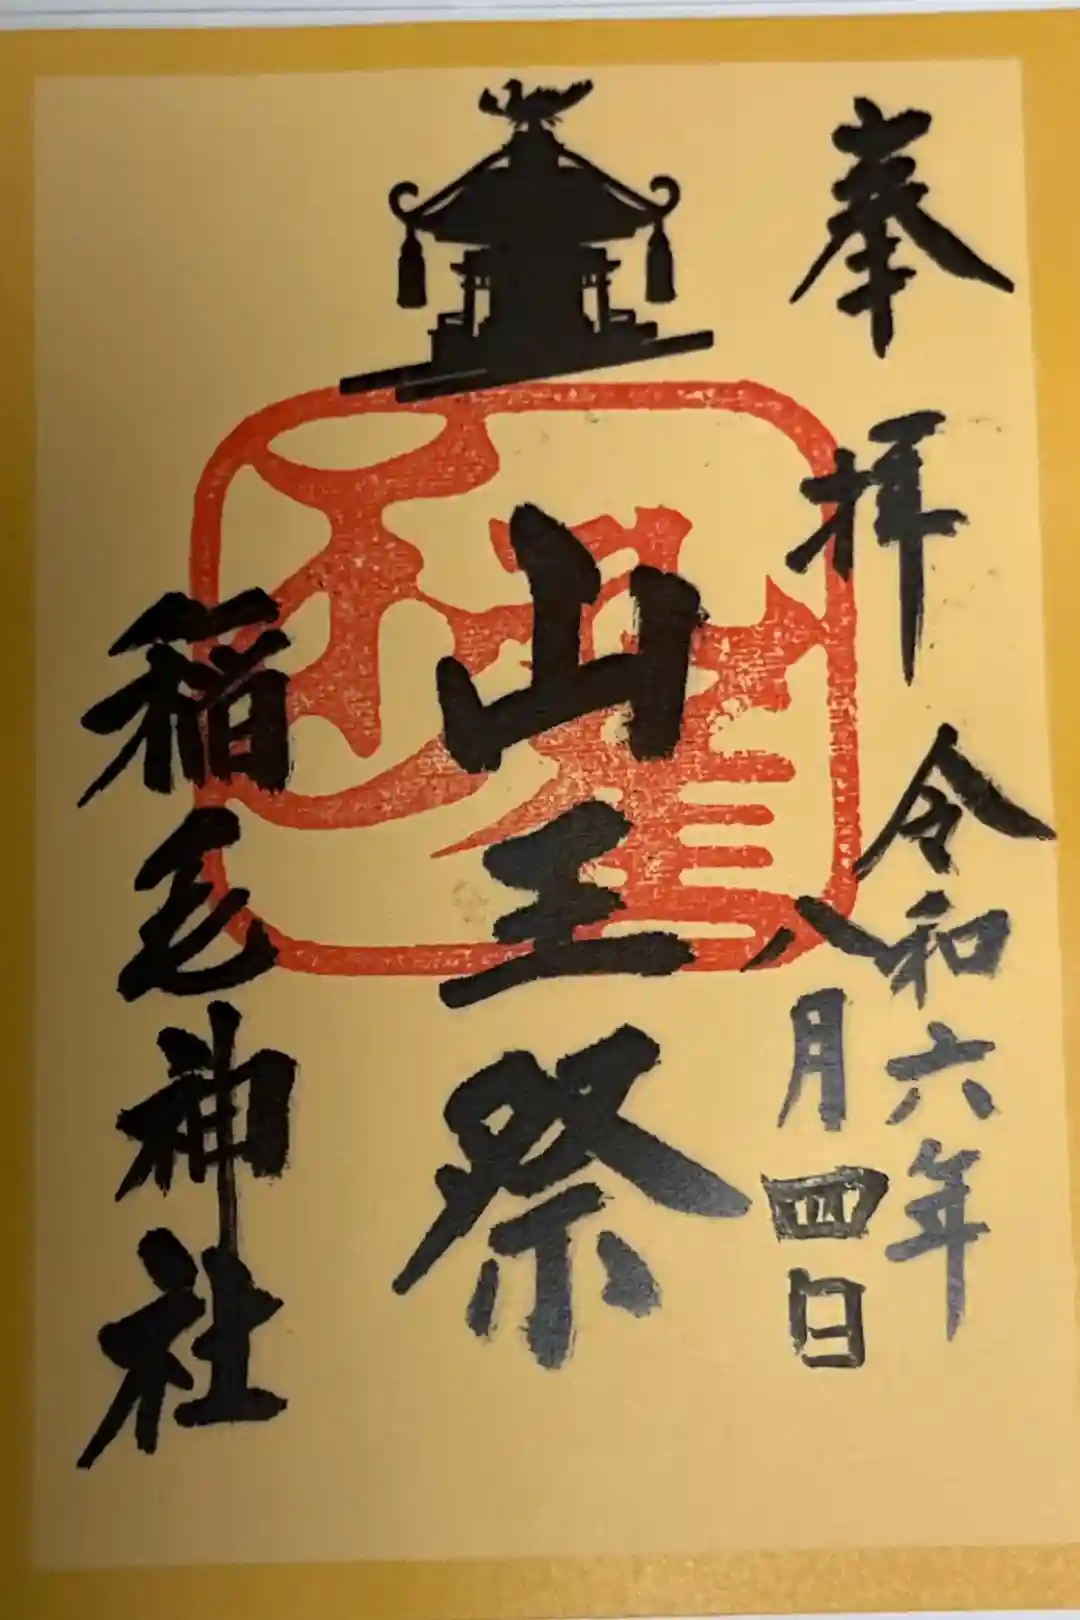 奉拝
令和六年
八月四日
山王祭
稲毛神社